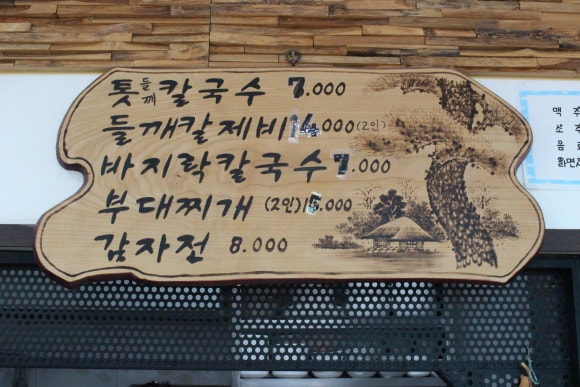 톳들깨칼국수 7.000
들깨칼제비 14.000(2인)
바지락칼국수 7.000
부대찌개 (2인) 15.000
감자전 8.000
맥주
쏘주
음료